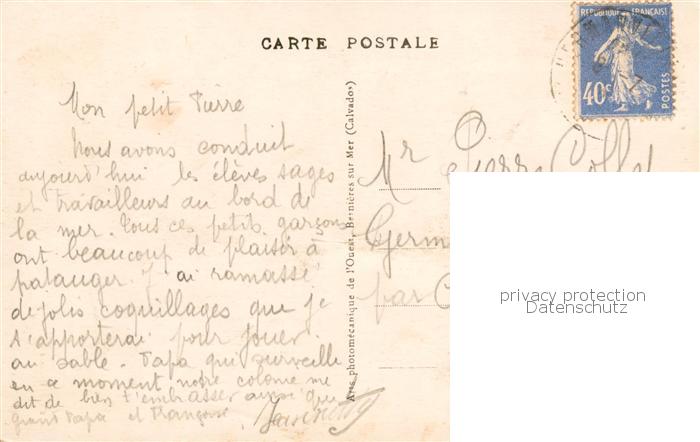 CARTE POSTALE
REPUBLIQUE FRANÇAISE
40c
POSTES
Mon petit Pierre
Nous avons conduit
aujourd'hui les élèves sages
et travailleurs au bord de
la mer. Tous ces petits garçons
ont beaucoup de plaisir à
patauger. J'ai ramassé
de jolis coquillages que je
t'apporterai pour jouer
au sable. Papa qui surveille
en ce moment notre colonie me
dit de bien t'embrasser ainsi que
grand Papa et Françoise
Arts photomécanique de l'Ouest, Bernières sur Mer (Calvados)
Mr Pierre
Germ
par C
privacy protection
Datenschutz